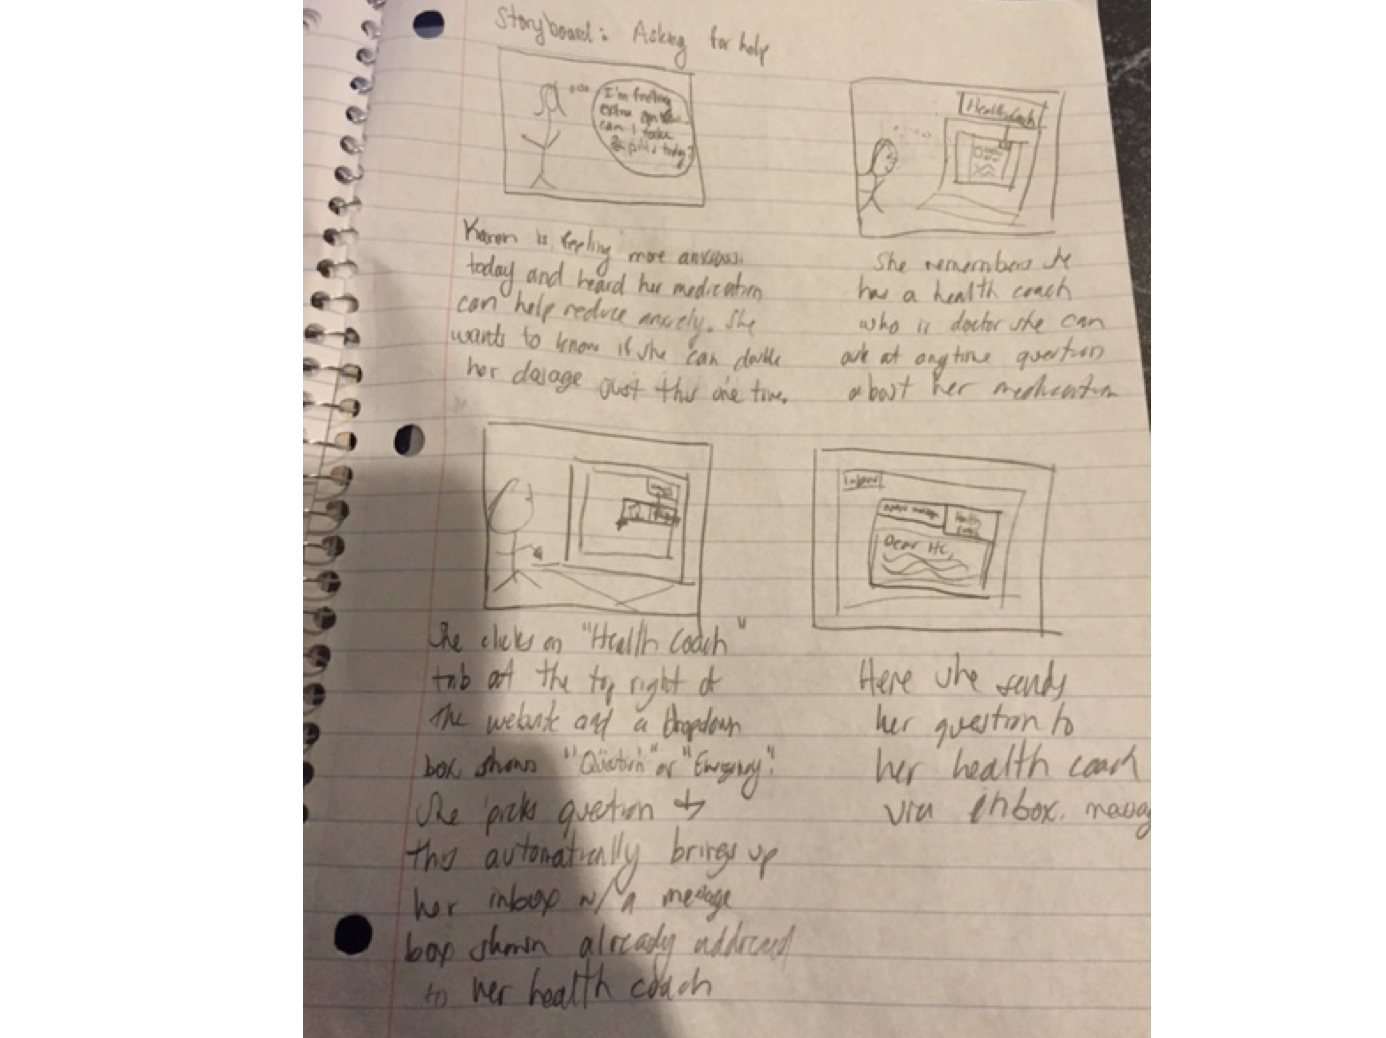 Storyboard: Asking for help
I'm feeling
extra
can I take
2 pills today?
Karen is feeling more anxious
today and heard her medication
can help reduce anxiety. She
wants to know if she can double
her dosage just this one time.
Health Coach
She remembers she
has a health coach
who is doctor she can
ask at anytime question
about her medication
She clicks on "Health Coach"
tab at the top right of
the website and a dropdown
box shows "Question" or "Emergency".
She picks question →
this automatically brings up
her inbox w/ a message
box shown already addressed
to her health coach
Inbox
message
Health
Coach
Dear HC,
Here she sends
her question to
her health coach
via inbox. messag